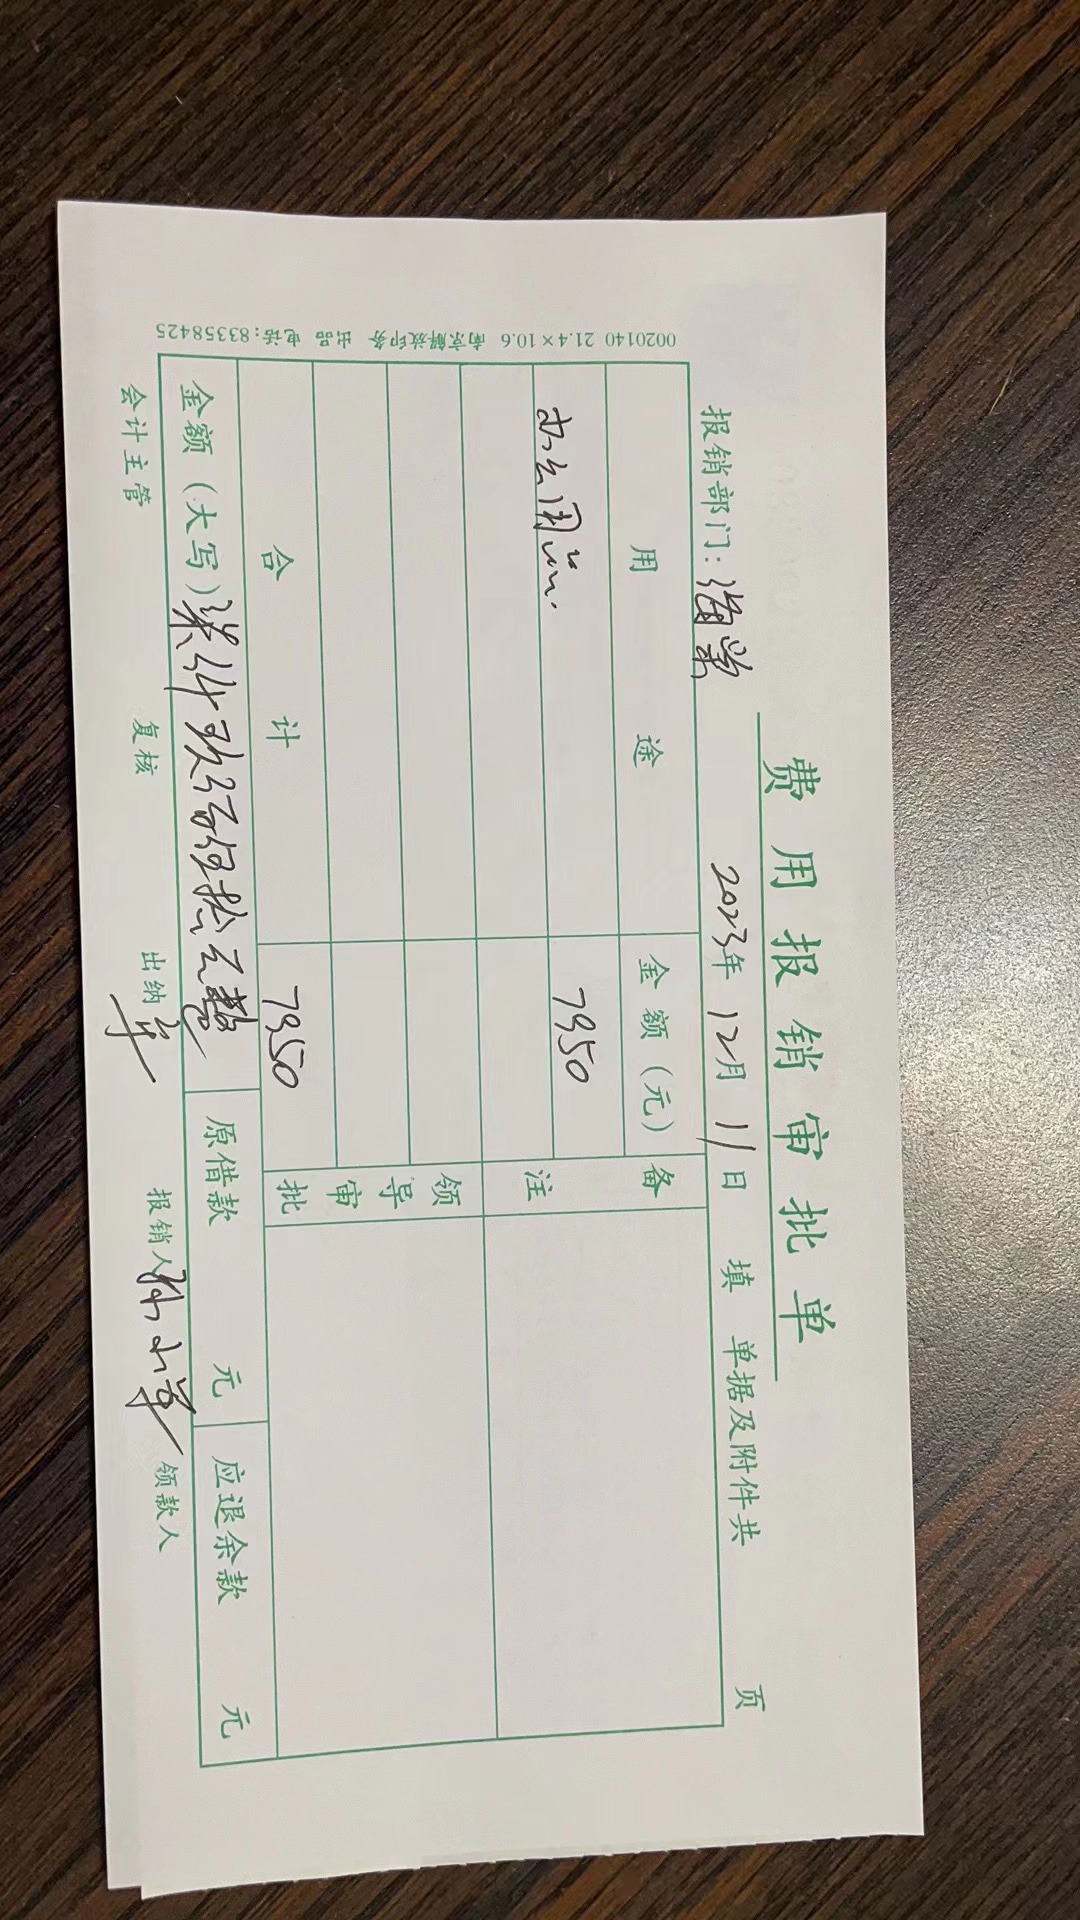 费用报销审批单
报销部门：海棠 2023年 12月 11日 填 单据及附件共 页
用途 金额（元） 备注
办公用品. 7950
领导审批
合计 7950
金额（大写）柒仟玖佰伍拾元整 原借款 元 应退余款 元
会计主管 复核 出纳 报销人 孙小军 领款人
0020140 21.4×10.6 南京解放印务 出品 电话:83358425